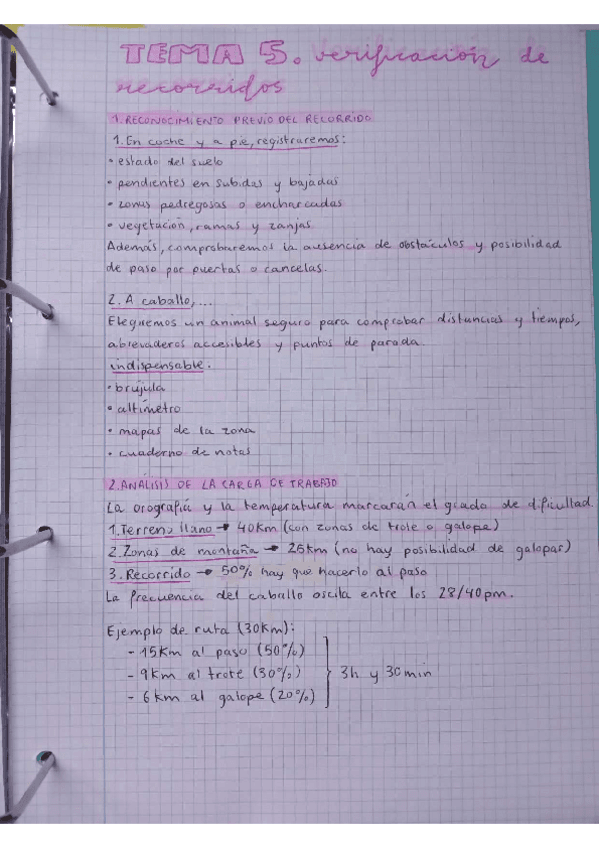 TEMA 5. verificación de
recorridos
1. RECONOCIMIENTO PREVIO DEL RECORRIDO
1. En coche y a pie, registraremos:
• estado del suelo
• pendientes en subidas y bajadas
• zonas pedregosas o encharcadas
• vegetación, ramas y zanjas
Además, comprobaremos la ausencia de obstáculos y posibilidad
de paso por puertas o cancelas.
2. A caballo,...
Elegiremos un animal seguro para comprobar distancias y tiempos,
abrevaderos accesibles y puntos de parada.
indispensable:
• brújula
• altímetro
• mapas de la zona
• cuaderno de notas
2. ANÁLISIS DE LA CARGA DE TRABAJO
La orografía y la temperatura marcarán el grado de dificultad.
1. Terreno llano → 40Km (con zonas de trote o galope)
2. Zonas de montaña → 25km (no hay posibilidad de galopar)
3. Recorrido → 50% hay que hacerlo al paso
La frecuencia del caballo oscila entre los 28/40pm.
Ejemplo de ruta (30Km):
- 15Km al paso (50%)
- 9Km al trote (30%) } 3h y 30min
- 6Km al galope (20%)